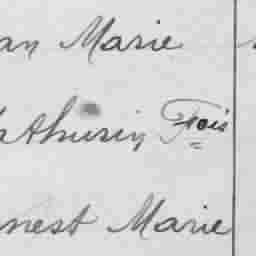 an Marie
athurin Fois
nest Marie